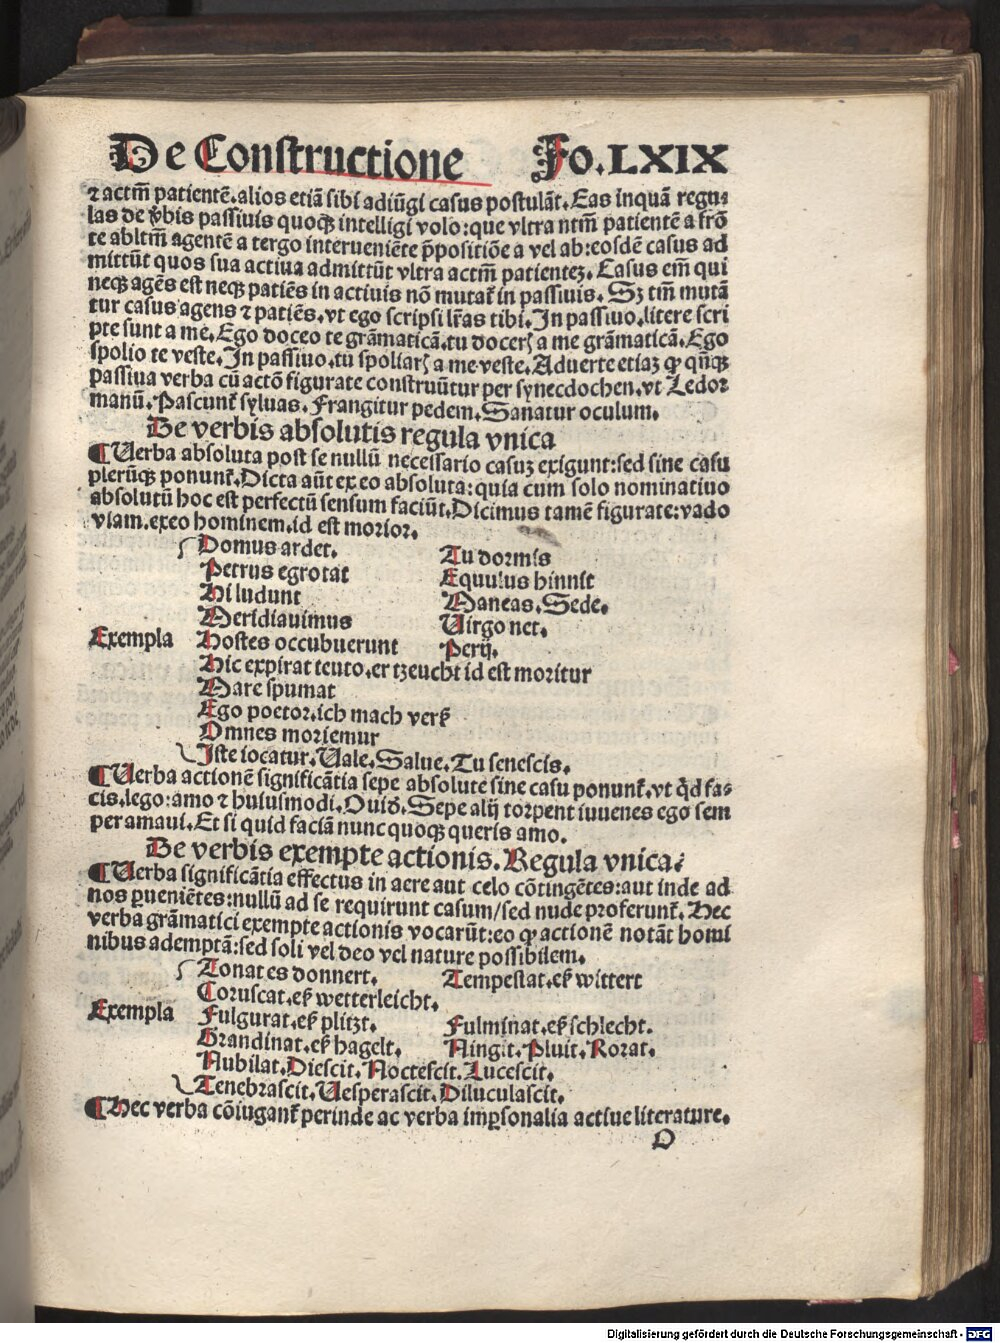 De Constructione Fo. LXIX
⁊ actm̄ patientē. alios etiā sibi adiūgi casus postulāt. Eas inquā regu-
las de v̄bis passiuis quoqꝫ intelligi volo: que vltra ntm̄ patientē a frō
te abltm̄ agentē a tergo interueniēte p̄positiōe a vel ab: eosdē casus ad
mittūt quos sua actiua admittūt vltra actm̄ patienteꝫ. Casus em̄ qui
neqꝫ agēs est neqꝫ patiēs in actiuis nō mutat᷑ in passiuis. Sꝫ tm̄ mutā
tur casus agens ⁊ patiēs. vt ego scripsi lr̄as tibi. In passiuo. litere scri
pte sunt a me. Ego doceo te grāmaticā. tu docerꝭ a me grāmaticā. Ego
spolio te veste. In passiuo. tu spoliarꝭ a me veste. Aduerte etiaꝫ ꝙ qn̄qꝫ
passiua verba cū actō figurate construūtur per synecdochen. vt Ledor
manū. Pascunt᷑ syluas. Frangitur pedem. Sanatur oculum.
De verbis absolutis regula vnica
¶ Verba absoluta post se nullū necessario casuꝫ exigunt: sed sine casu
plerūqꝫ ponunt᷑. Dicta aūt ex eo absoluta: quia cum solo nominatiuo
absolutū hoc est perfectū sensum faciūt. Dicimus tamē figurate: vado
viam. exeo hominem. id est morior.
Domus ardet. Tu dormis
Petrus egrotat Equulus hinnit
Hi ludunt Maneas. Sede.
Meridiauimus Virgo net.
Exempla Hostes occubuerunt Perij.
Hic expirat teuto. er tzeucht id est moritur
Mare spumat
Ego poetor. ich mach verß
Omnes moriemur
Iste iocatur. Vale. Salue. Tu senescis.
¶ Verba actionē significātia sepe absolute sine casu ponunt᷑. vt qd̄ fa-
cis. lego: amo ⁊ huiusmodi. Ouid. Sepe alij torpent iuuenes ego sem
per amaui. Et si quid faciā nunc quoqꝫ queris amo.
De verbis exempte actionis. Regula vnica.
¶ Verba significātia effectus in aere aut celo cōtingētes: aut inde ad
nos ꝑueniētes: nullū ad se requirunt casum/ sed nude proferunt᷑. Hec
verba grāmatici exempte actionis vocarūt: eo ꝙ actionē notāt homi
nibus ademptā: sed soli vel deo vel nature possibilem.
Tonat es donnert. Tempestat. eß wittert
Coruscat. eß wetterleicht.
Exempla Fulgurat. eß plitzt. Fulminat. eß schlecht.
Grandinat. eß hagelt. Ningit. Pluit. Rorat.
Nubilat. Diescit. Noctescit. Lucescit.
Tenebrascit. Vesperascit. Diluculascit.
¶ Hec verba cōiugant᷑ perinde ac verba imꝑsonalia actiue literature.
O
Digitalisierung gefördert durch die Deutsche Forschungsgemeinschaft - DFG